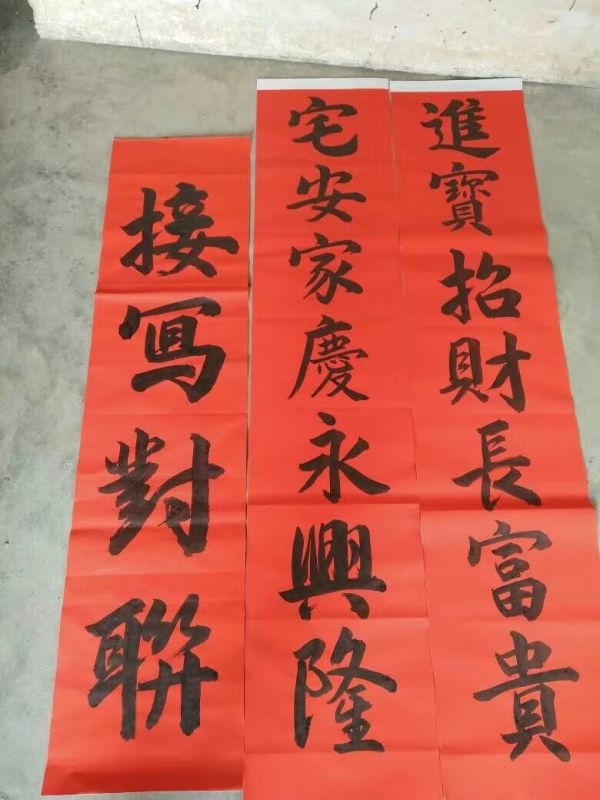 進寶招財長富貴
宅安家慶永興隆
接寫對聯